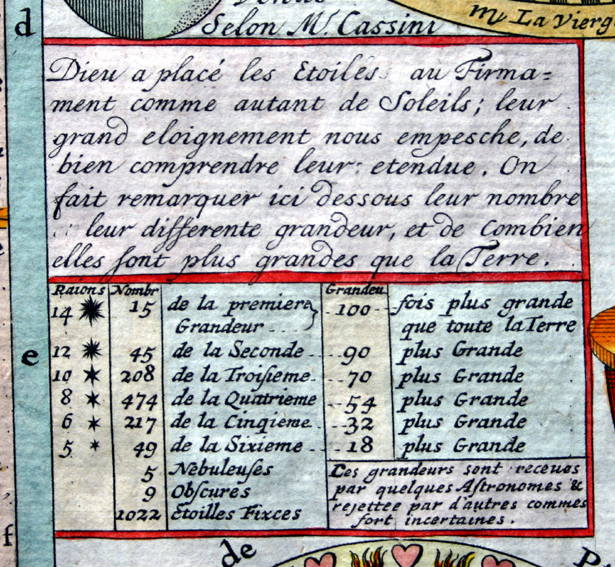 d
Selon Mr. Cassini
m La Vierg
Dieu a placé les Etoiles au Firma=
ment comme autant de Soleils; leur
grand eloignement nous empesche, de
bien comprendre leur etendue. On
fait remarquer ici dessous leur nombre
leur differente grandeur, et de Combien
elles sont plus grandes que la Terre.
Raions Nombr Grandeu
14 15 de la premiere Grandeur 100 fois plus grande que toute la Terre
12 45 de la Seconde 90 plus Grande
10 208 de la Troisieme 70 plus Grande
8 474 de la Quatrieme 54 plus Grande
6 217 de la Cinqieme 32 plus Grande
5 49 de la Sixieme 18 plus Grande
5 Nebuleuses
9 Obscures
1022 Etoilles Fixces
Ces grandeurs sont receues
par quelques Astronomes &
rejettee par d'autres commes
fort incertaines.
e
f
de